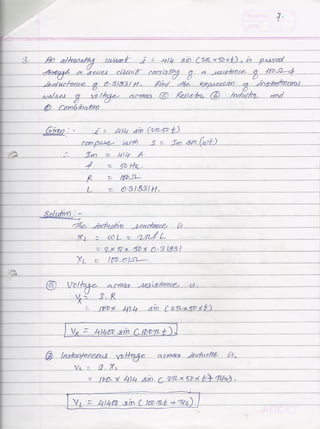 7.
3. An alternating current i = 414 sin (2π×50×t), is passed
through a series circuit consisting of a resistance of 100Ω &
inductance of 0.31831 H. Find the expression of instantaneous
values of voltage across (a) Resistor, (b) Inductor, and
(c) Combination
Given:- i = 414 sin (2π50t)
compare with I = Im sin(ωt)
∴ Im = 414 A
f = 50 Hz.
R = 100Ω
L = 0.31831H.
Solution:-
The inductive reactance is
XL = ωL = 2πfL
= 2×π×50×0.31831
XL = 100.01Ω
(a) Voltage across resistance is.
VR = I.R
= 100× 414 sin (2π×50×t)
VR = 41400 sin (100πt)
(b) Instantaneous voltage across inductor is,
VL = I.XL
= 100 × 414 sin (2π×50×t+π/2).
VL = 41400 sin (100πt + π/2)